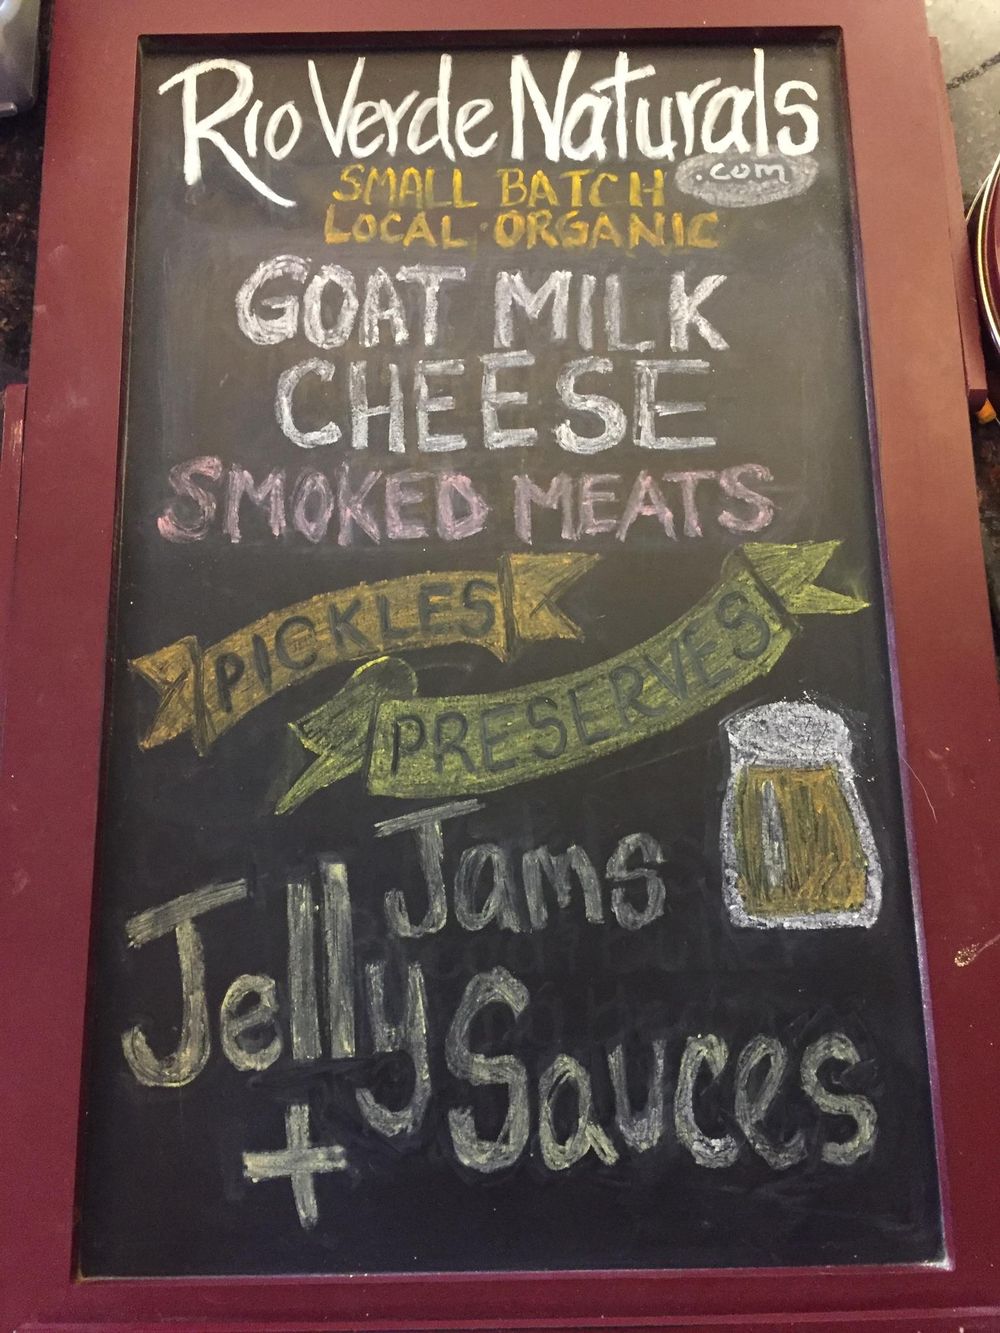 Rio Verde Naturals
.com
SMALL BATCH
LOCAL·ORGANIC
GOAT MILK
CHEESE
SMOKED MEATS
PICKLES
PRESERVES
Jams
Jelly
+ Sauces